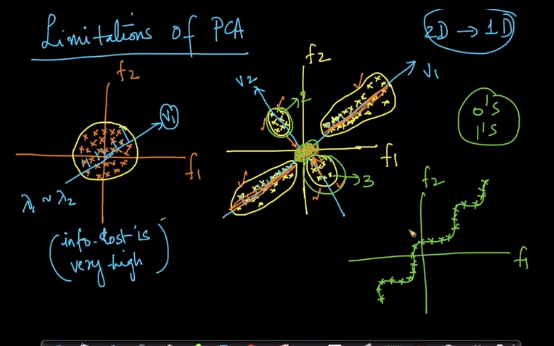 Limitations of PCA
2D → 1D
f2
V1
λ1 ~ λ2
f1
(info-lost is
very high)
f2
V2
V1
2
f1
3
0's
1's
f2
f1